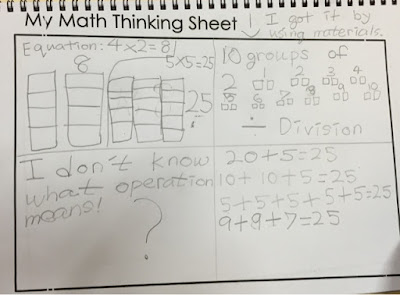 My Math Thinking Sheet
I got it by
using materials.
Equation: 4×2=8
8
5×5=25
25
10 groups of
2
1 2 3 4
5 6 7 8 9 10
÷ Division
I don't know
what operation
means!
?
20+5=25
10+10+5=25
5+5+5+5+5=25
9+9+7=25